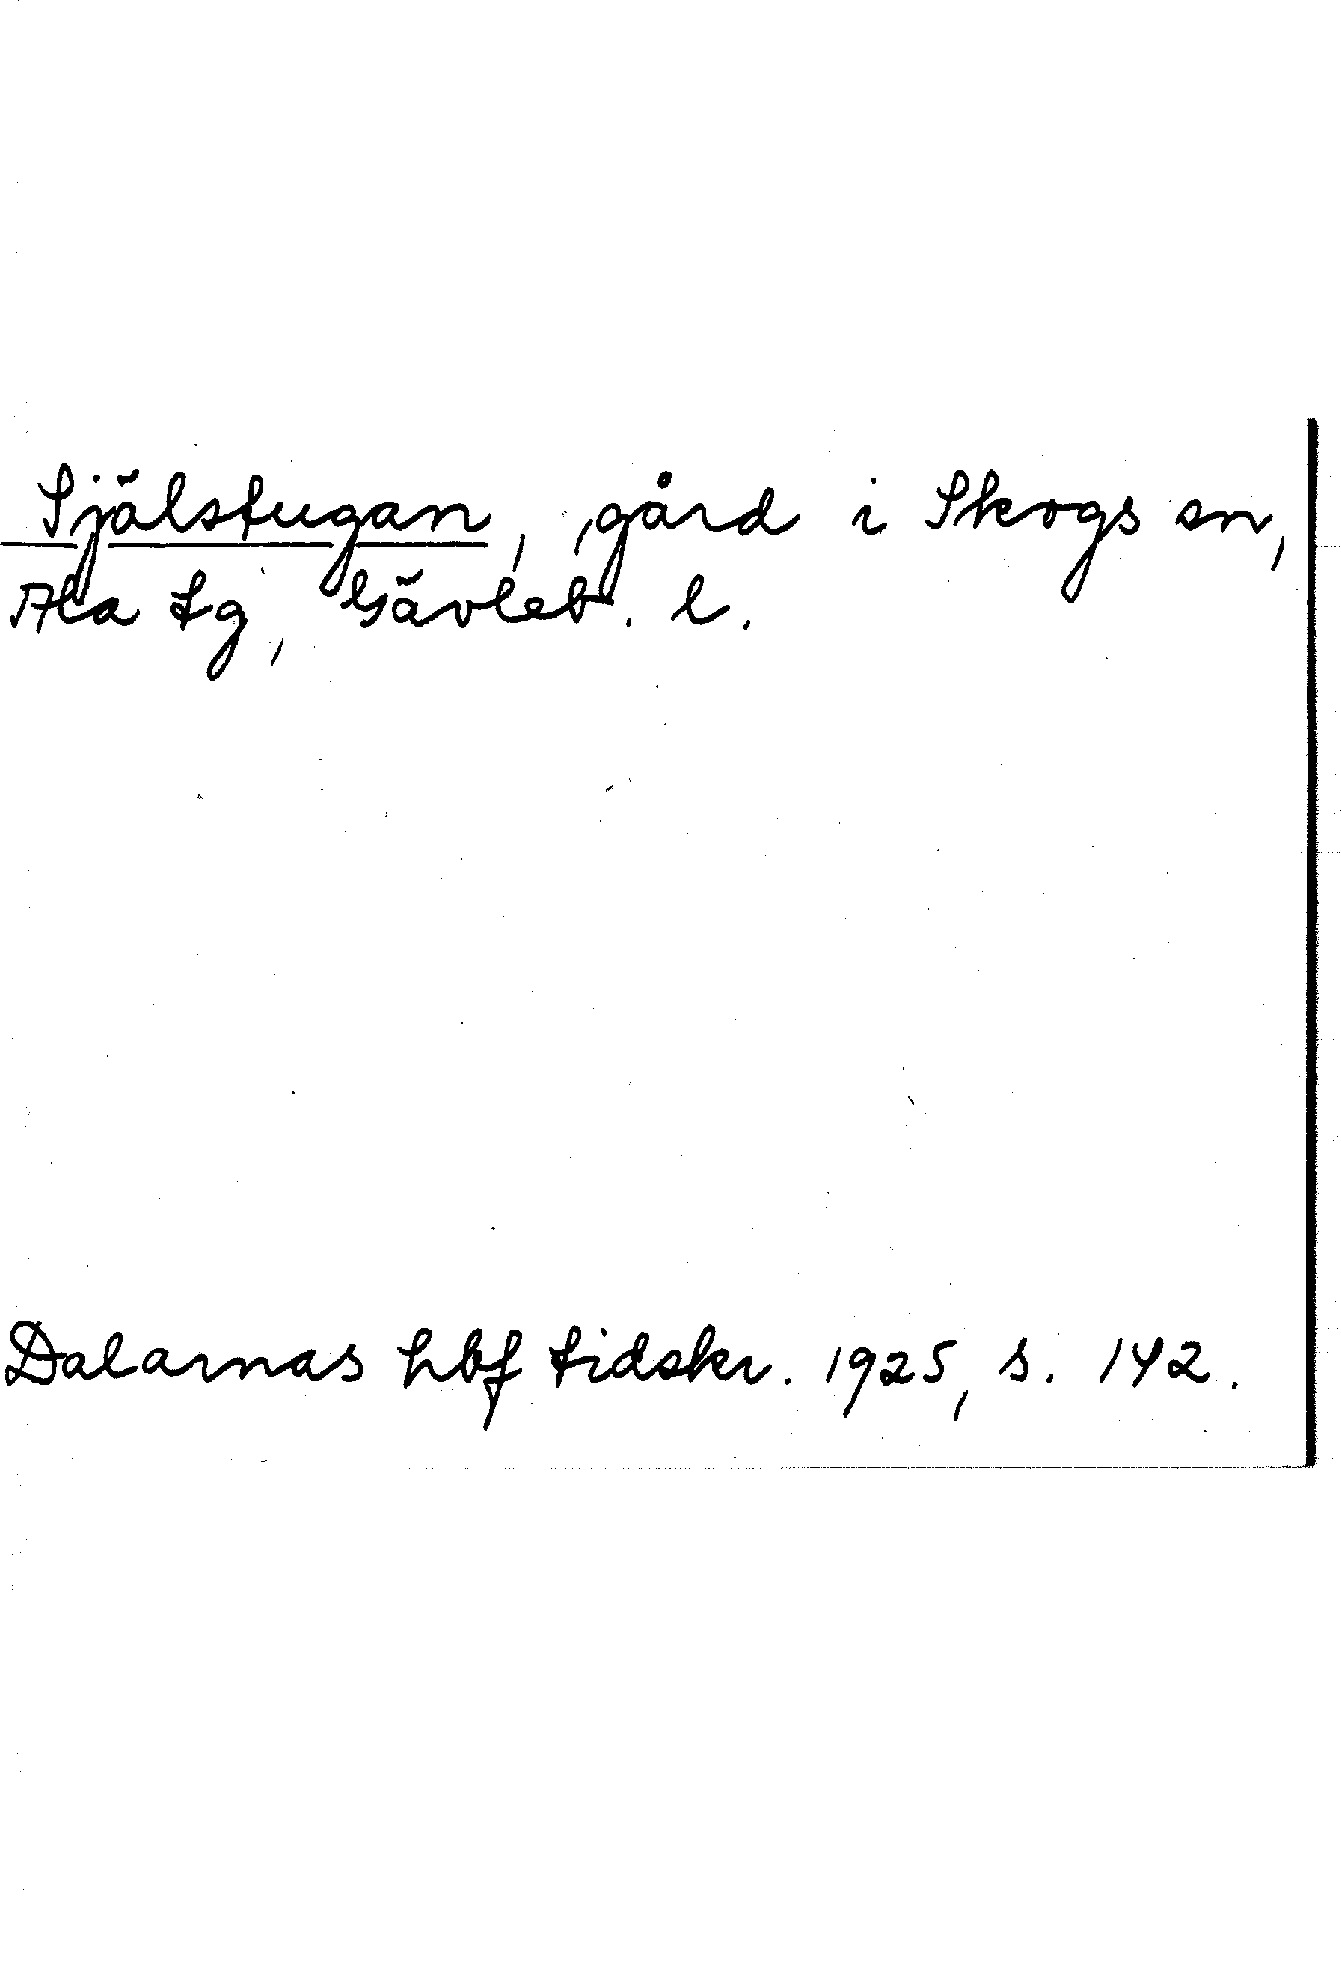 Själstugan, gård i Skogs sn,
Ala tg, Gävleb. l.
Dalarnas hbf tidskr. 1925, s. 142.